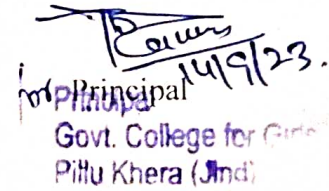 14/9/23.
for Principal
Principal
Govt. College for Girls
Pillu Khera (Jind)